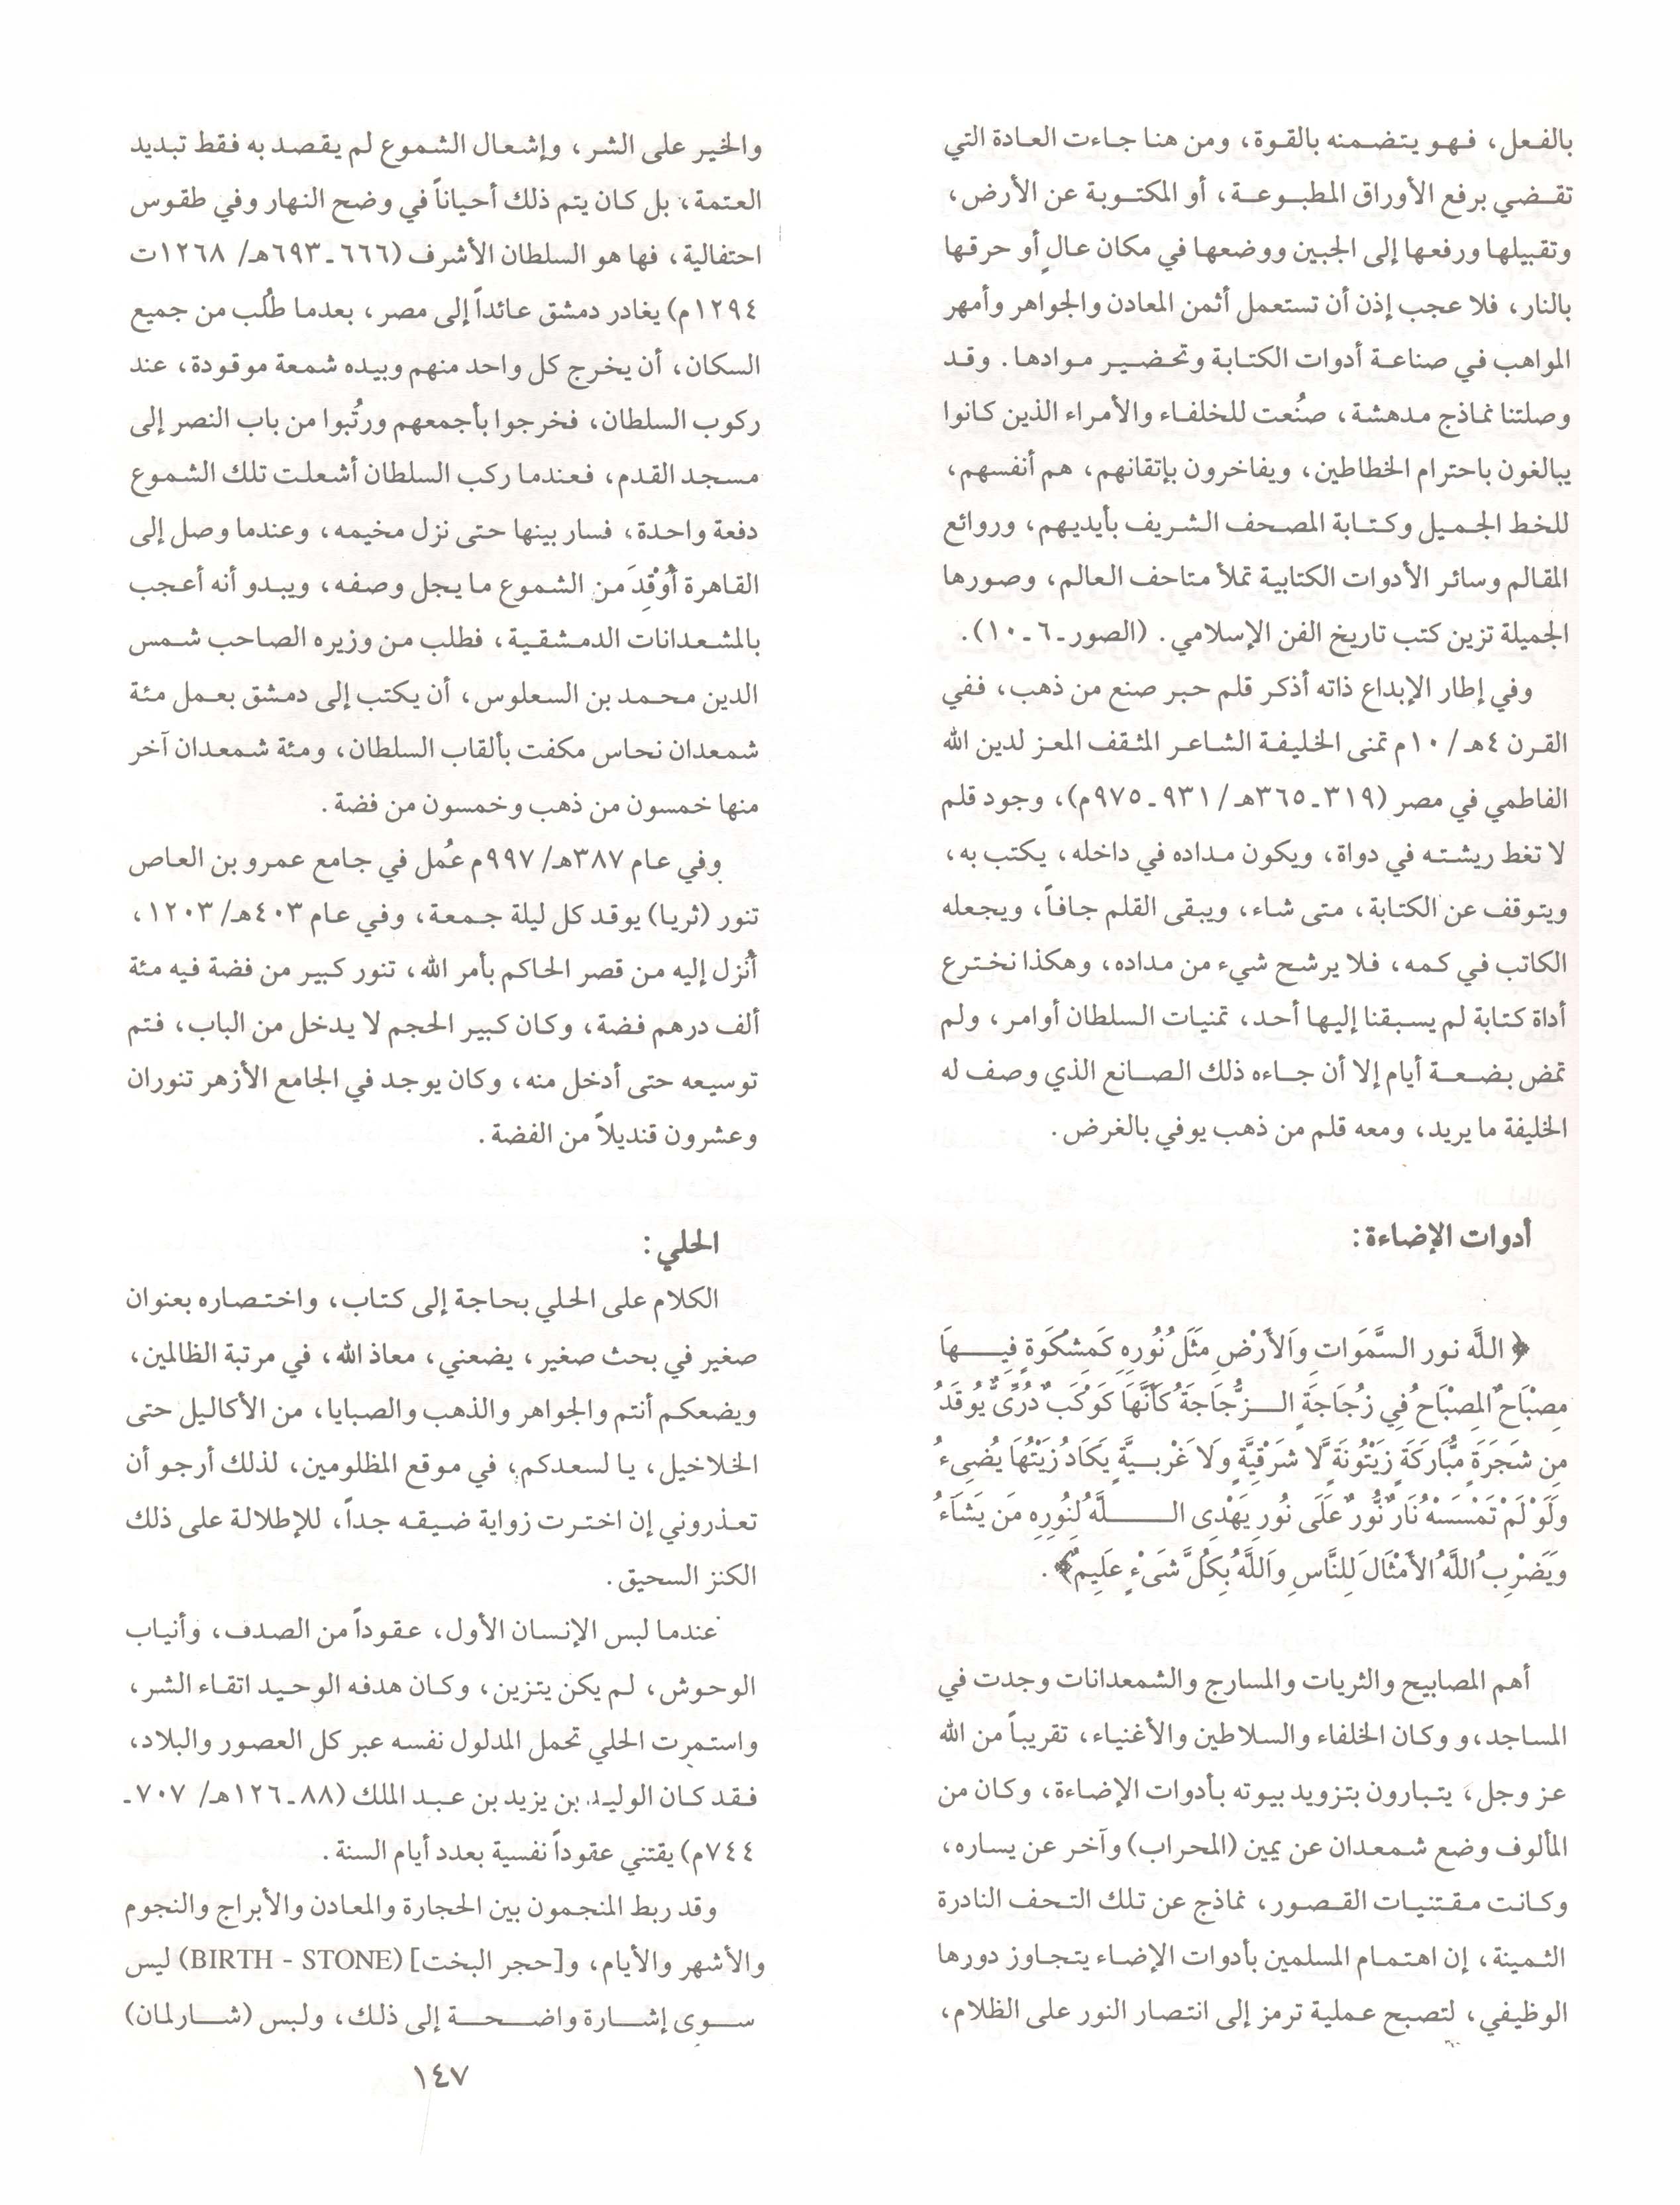 بالفعل، فهو يتضمنه بالقوة، ومن هنا جاءت العادة التي
تقضي برفع الأوراق المطبوعة، أو المكتوبة عن الأرض،
وتقبيلها ورفعها إلى الجبين ووضعها في مكان عالٍ أو حرقها
بالنار، فلا عجب إذن أن تستعمل أثمن المعادن والجواهر وأمهر
المواهب في صناعة أدوات الكتابة وتحضير موادها. وقد
وصلتنا نماذج مدهشة، صنُعت للخلفاء والأمراء الذين كانوا
يبالغون باحترام الخطاطين، ويفاخرون بإتقانهم، هم أنفسهم،
للخط الجميل وكتابة المصحف الشريف بأيديهم، وروائع
المقالم وسائر الأدوات الكتابية تملأ متاحف العالم، وصورها
الجميلة تزين كتب تاريخ الفن الإسلامي. (الصور ـ ٦ ـ ١٠).
وفي إطار الإبداع ذاته أذكر قلم حبر صنع من ذهب، ففي
القرن ٤هـ/ ١٠م تمنى الخليفة الشاعر المثقف المعز لدين الله
الفاطمي في مصر (٣١٩ـ٣٦٥هـ/ ٩٣١ـ٩٧٥م)، وجود قلم
لا تغط ريشته في دواة، ويكون مداده في داخله، يكتب به،
ويتوقف عن الكتابة، متى شاء، ويبقى القلم جافاً، ويجعله
الكاتب في كمه، فلا يرشح شيء من مداده، وهكذا نخترع
أداة كتابة لم يسبقنا إليها أحد، تمنيات السلطان أوامر، ولم
تمض بضعة أيام إلا أن جاءه ذلك الصانع الذي وصف له
الخليفة ما يريد، ومعه قلم من ذهب يوفي بالغرض.
أدوات الإضاءة:
﴿ اللَّه نور السَّمَوات وَالأَرْضِ مَثَلُ نُورِهِ كَمِشْكَوةٍ فِيهَا
مِصْبَاحٌ المِصْبَاحُ فِي زُجَاجَةٍ الزُّجَاجَةُ كَأَنَّهَا كَوْكَبٌ دُرِّىٌّ يُوقَدُ
مِن شَجَرَةٍ مُّبَارَكَةٍ زَيْتُونَةٍ لاَّ شَرْقِيَّةٍ وَلاَ غَرْبِيَّةٍ يَكَادُ زَيْتُهَا يُضِىءُ
وَلَوْ لَمْ تَمْسَسْهُ نَارٌ نُّورٌ عَلَى نُورٍ يَهْدِى اللَّهُ لِنُورِهِ مَن يَشَاءُ
وَيَضْرِبُ اللَّهُ الأَمْثَالَ لِلنَّاسِ وَاللَّهُ بِكُلِّ شَىْءٍ عَلِيمٌ﴾.
أهم المصابيح والثريات والمسارج والشمعدانات وجدت في
المساجد،و وكان الخلفاء والسلاطين والأغنياء، تقريباً من الله
عز وجل، يتبارون بتزويد بيوته بأدوات الإضاءة، وكان من
المألوف وضع شمعدان عن يمين (المحراب) وآخر عن يساره،
وكانت مقتنيات القصور، نماذج عن تلك التحف النادرة
الثمينة، إن اهتمام المسلمين بأدوات الإضاء يتجاوز دورها
الوظيفي، لتصبح عملية ترمز إلى انتصار النور على الظلام،
والخير على الشر، وإشعال الشموع لم يقصد به فقط تبديد
العتمة، بل كان يتم ذلك أحياناً في وضح النهار وفي طقوس
احتفالية، فها هو السلطان الأشرف (٦٦٦ـ٦٩٣هـ/ ١٢٦٨ت
١٢٩٤م) يغادر دمشق عائداً إلى مصر، بعدما طلُب من جميع
السكان، أن يخرج كل واحد منهم وبيده شمعة موقودة، عند
ركوب السلطان، فخرجوا بأجمعهم ورتُبوا من باب النصر إلى
مسجد القدم، فعندما ركب السلطان أشعلت تلك الشموع
دفعة واحدة، فسار بينها حتى نزل مخيمه، وعندما وصل إلى
القاهرة أُوْقِدَ من الشموع ما يجل وصفه، ويبدو أنه أعجب
بالمشعدانات الدمشقية، فطلب من وزيره الصاحب شمس
الدين محمد بن السعلوس، أن يكتب إلى دمشق بعمل مئة
شمعدان نحاس مكفت بألقاب السلطان، ومئة شمعدان آخر
منها خمسون من ذهب وخمسون من فضة.
وفي عام ٣٨٧هـ/ ٩٩٧م عُمل في جامع عمرو بن العاص
تنور (ثريا) يوقد كل ليلة جمعة، وفي عام ٤٠٣هـ/ ١٢٠٣،
أُنزل إليه من قصر الحاكم بأمر الله، تنور كبير من فضة فيه مئة
ألف درهم فضة، وكان كبير الحجم لا يدخل من الباب، فتم
توسيعه حتى أدخل منه، وكان يوجد في الجامع الأزهر تنوران
وعشرون قنديلاً من الفضة.
الحلي:
الكلام على الحلي بحاجة إلى كتاب، واختصاره بعنوان
صغير في بحث صغير، يضعني، معاذ الله، في مرتبة الظالمين،
ويضعكم أنتم والجواهر والذهب والصبايا، من الأكاليل حتى
الخلاخيل، يا لسعدكم، في موقع المظلومين، لذلك أرجو أن
تعذروني إن اخترت زواية ضيقه جداً، للإطلالة على ذلك
الكنز السحيق.
عندما لبس الإنسان الأول، عقوداً من الصدف، وأنياب
الوحوش، لم يكن يتزين، وكان هدفه الوحيد اتقاء الشر،
واستمرت الحلي تحمل المدلول نفسه عبر كل العصور والبلاد،
فقد كان الوليد بن يزيد بن عبد الملك (٨٨ـ١٢٦هـ/ ٧٠٧ـ
٧٤٤م) يقتني عقوداً نفسية بعدد أيام السنة.
وقد ربط المنجمون بين الحجارة والمعادن والأبراج والنجوم
والأشهر والأيام، و[حجر البخت] (BIRTH - STONE) ليس
سوى إشارة واضحة إلى ذلك، ولبس (شارلمان)
١٤٧